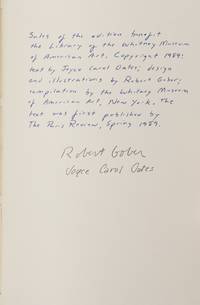 Sales of the edition benefit
the Library of the Whitney Museum
of American Art. Copyright 1989:
text by Joyce Carol Oates; design
and illustrations by Robert Gober;
compilation by the Whitney Museum
of American Art, New York. The
text was first published by
The Paris Review, Spring 1989.
Robert Gober
Joyce Carol Oates